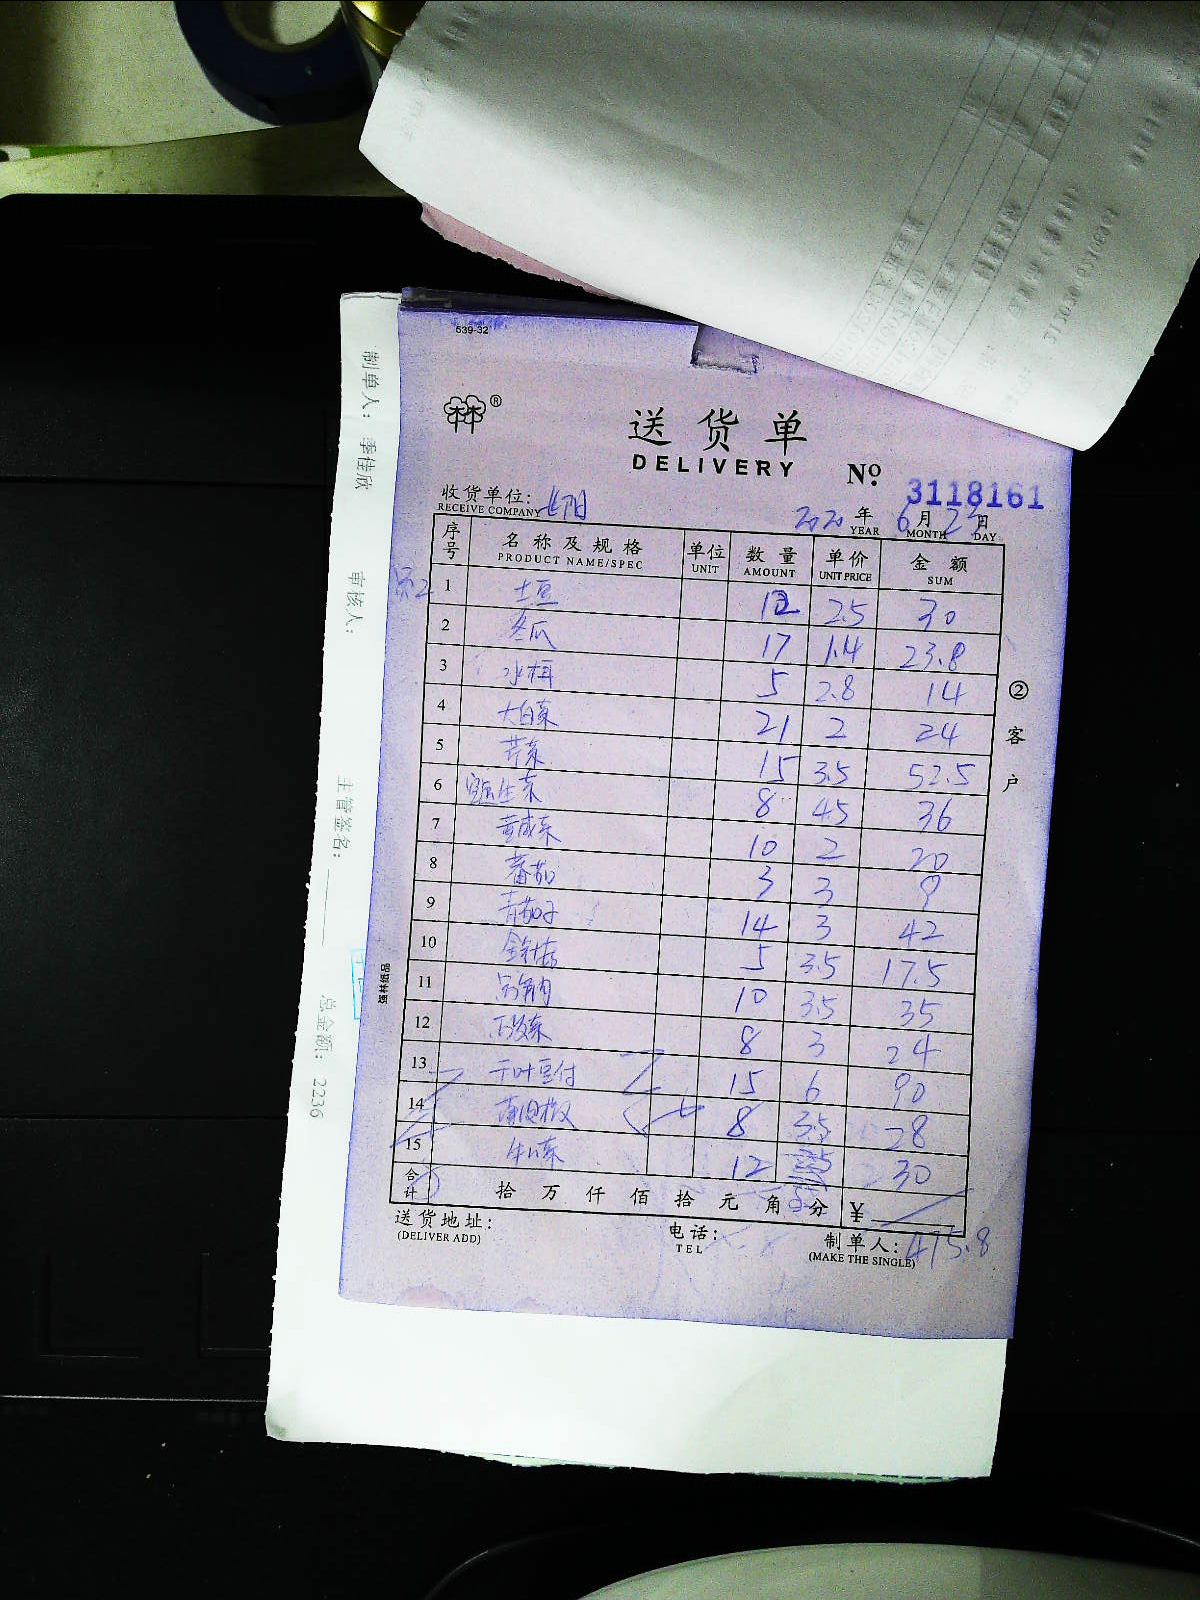 539-32
®
送货单
DELIVERY
No. 3118161
收货单位:
RECEIVE COMPANY
2020 年 6 月 23 日
YEAR MONTH DAY
序号 名称及规格 单位 数量 单价 金额
PRODUCT NAME/SPEC UNIT AMOUNT UNIT PRICE SUM
1 土豆 12 2.5 30
2 冬瓜 17 1.4 23.8
3 5 2.8 14
4 大白菜 21 2 24
5 芹菜 15 3.5 52.5
6 生菜 8 4.5 36
7 10 2 20
8 番茄 3 3 9
9 青茄子 14 3 42
10 金针菇 5 3.5 17.5
11 10 3.5 35
12 8 3 24
13 千叶豆付 15 6 90
14 8 3.5 28
15 12 30
合计 拾 万 仟 佰 拾 元 角 分 ¥
475.8
送货地址:
(DELIVER ADD)
电话:
TEL
制单人:
(MAKE THE SINGLE)
②客户
强林纸品
制单人: 季佳欣
审核人:
主管签名:
总金额: 2236